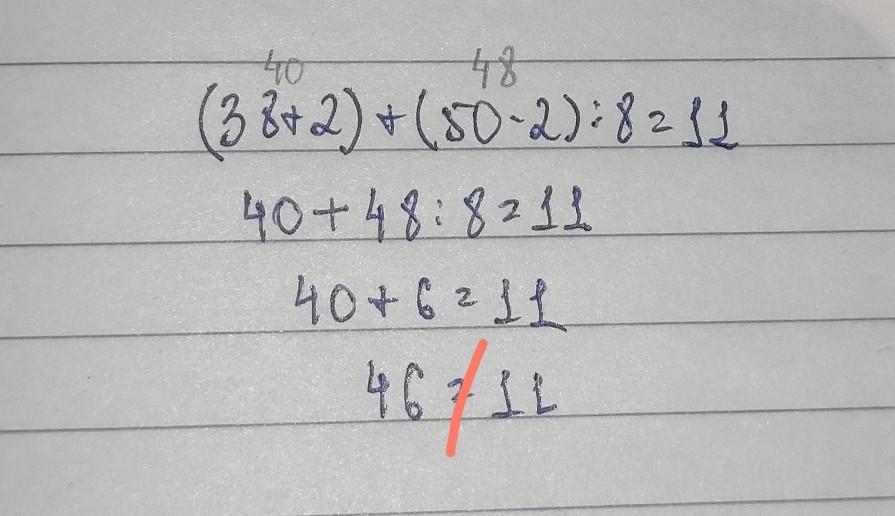 40 48
(38+2)+(50-2):8=11
40+48:8=11
40+6=11
46≠11